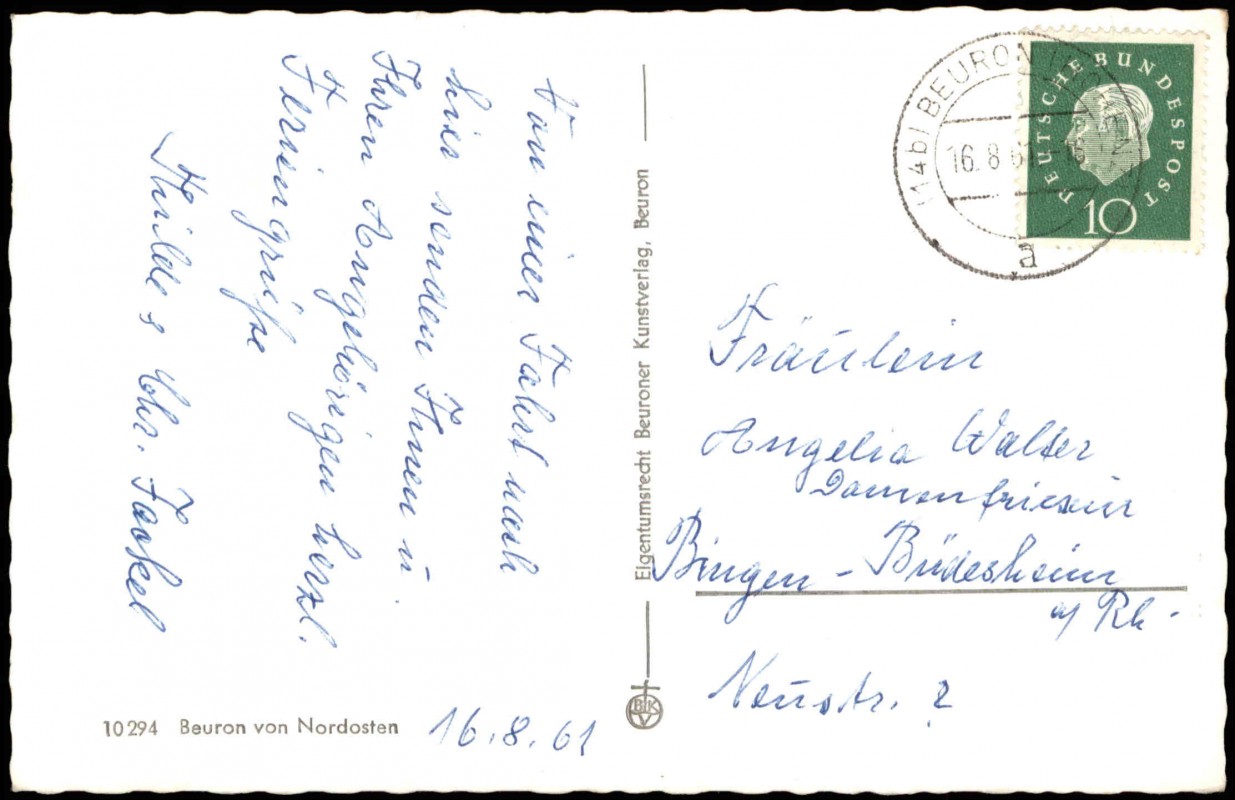 Von einer Fahrt nach
hier senden Ihnen u
Ihren Angehörigen herzl.
Feriengrüße
& Chr. Fackel
10294 Beuron von Nordosten
16.8.61
Eigentumsrecht Beuroner Kunstverlag, Beuron
BKV
(14b) BEURON
16.8.61
a
DEUTSCHE BUNDESPOST
10
Fräulein
Angelia Walter
Damenfriseur
Bingen - Büdesheim
a/ Rh.
Neustr. 2